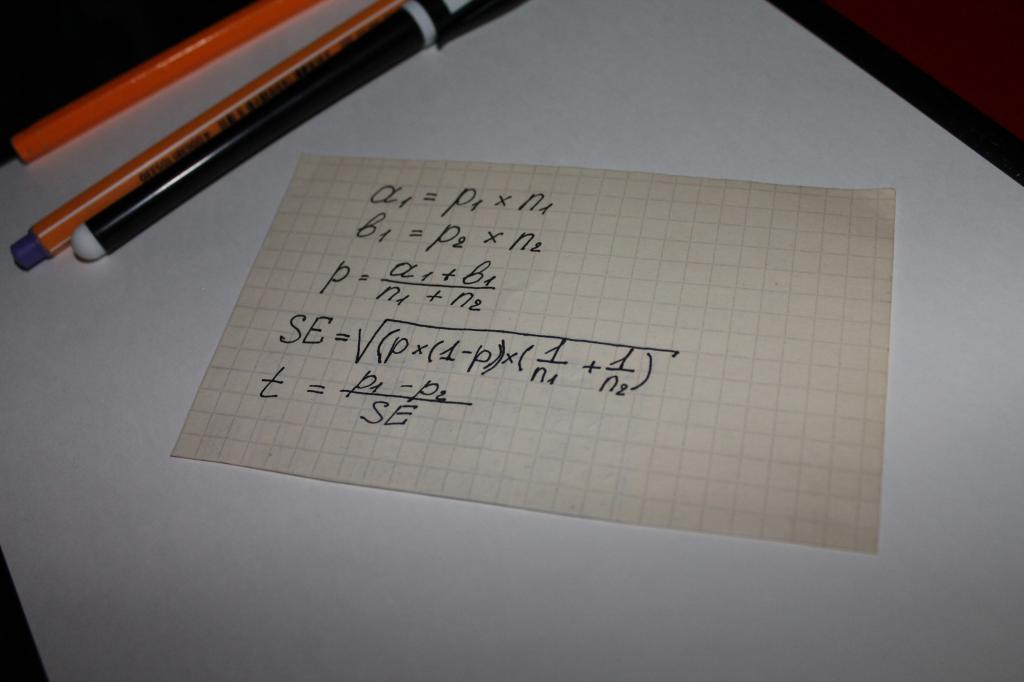 a₁ = p₁ × n₁
в₁ = p₂ × n₂
p = (a₁ + в₁) / (n₁ + n₂)
SE = √((p × (1 - p)) × (1/n₁ + 1/n₂))
t = (p₁ - p₂) / SE